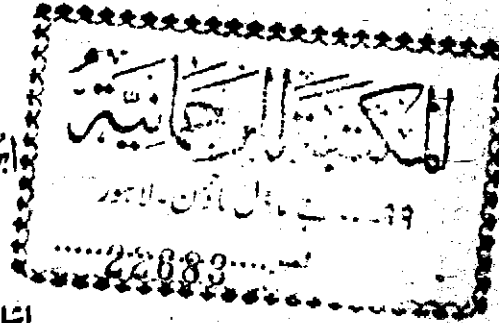 المكتبة الرحمانية
۹۹ ..... ماڈل ٹاؤن۔ لاہور
نمبر ..... 22883 .....